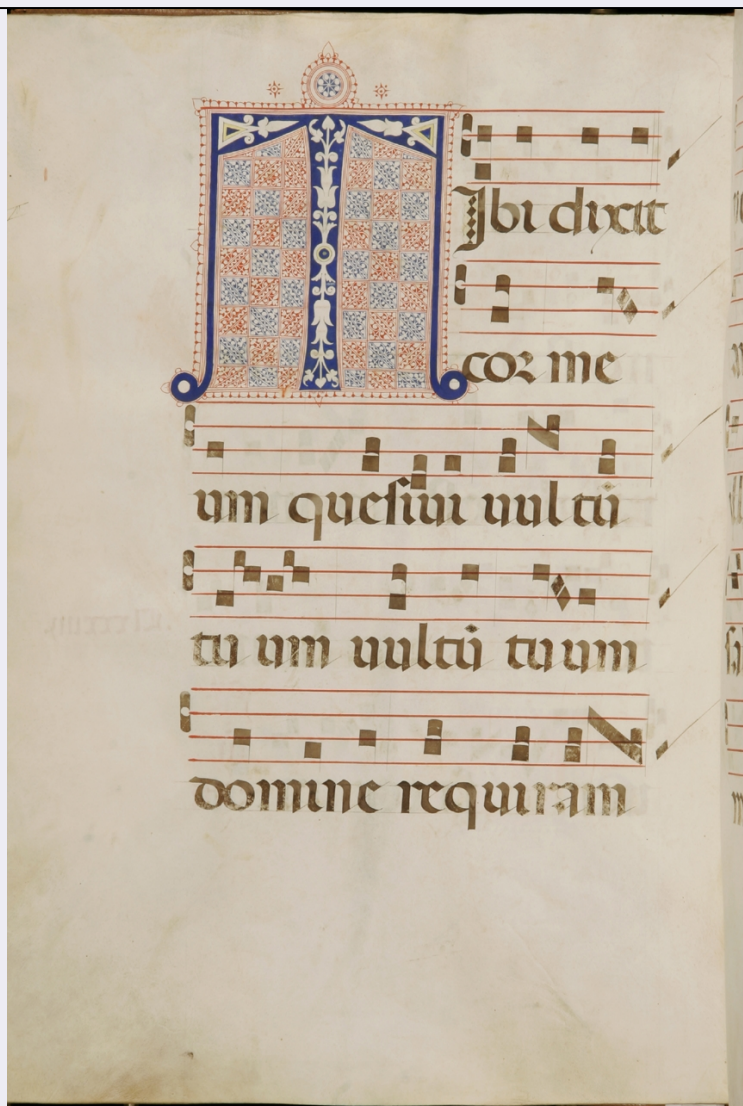 TIbi dixit
cor me
um quesiui uultū
tu um uultū tuum
domine requiram